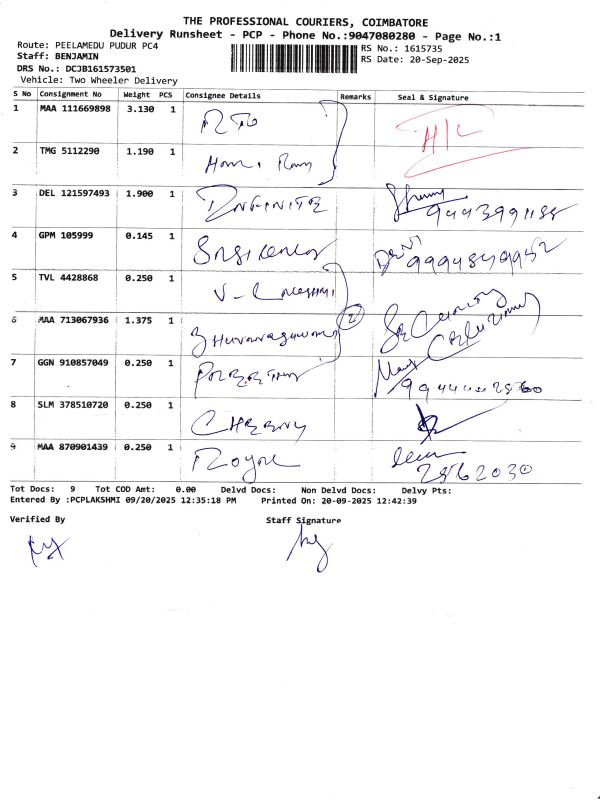 THE PROFESSIONAL COURIERS, COIMBATORE
Delivery Runsheet - PCP - Phone No.:9047080280 - Page No.:1
Route: PEELAMEDU PUDUR PC4
RS No.: 1615735
Staff: BENJAMIN
RS Date: 20-Sep-2025
DRS No.: DCJB161573501
Vehicle: Two Wheeler Delivery
S No Consignment No Weight PCS Consignee Details Remarks Seal & Signature
1 MAA 111669898 3.130 1 RTO H/C
2 TMG 5112290 1.190 1
3 DEL 121597493 1.900 1 INFINITE
4 GPM 105999 0.145 1
5 TVL 4428868 0.250 1
6 MAA 713067936 1.375 1 2
7 GGN 910857049 0.250 1
8 SLM 378510720 0.250 1 CHERRY
9 MAA 870901439 0.250 1 2562030
Tot Docs: 9 Tot COD Amt: 0.00 Delvd Docs: Non Delvd Docs: Delvy Pts:
Entered By :PCPLAKSHMI 09/20/2025 12:35:18 PM Printed On: 20-09-2025 12:42:39
Verified By Staff Signature